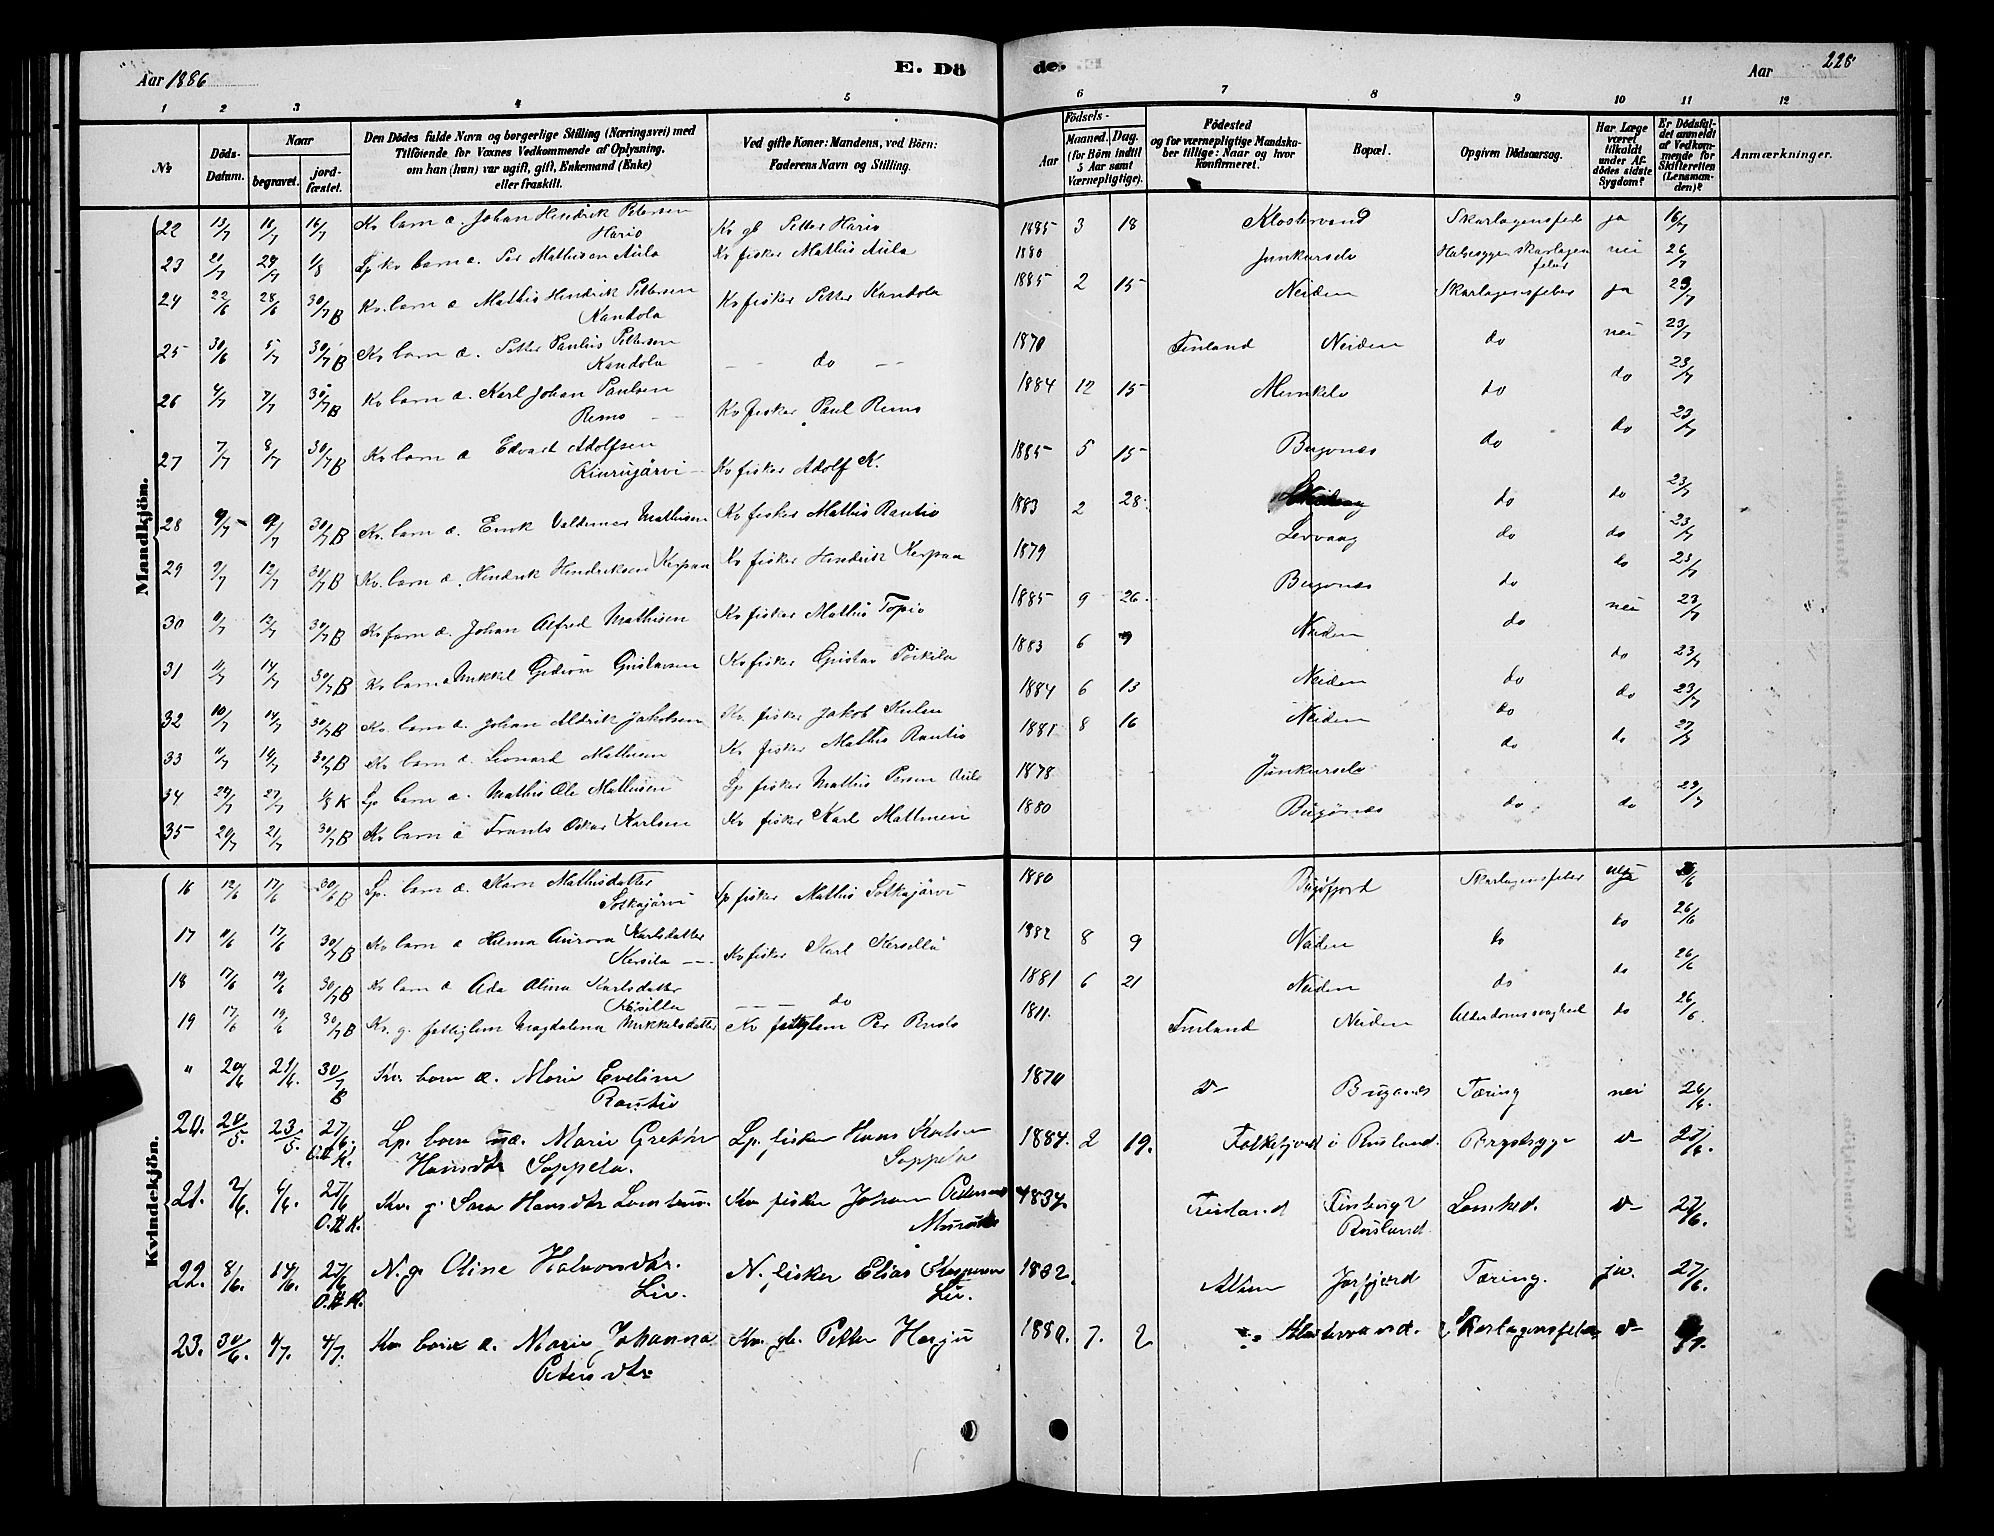 Aar 1886
E. Dö
de.
Aar
228
1 2 3 4 5 6 7 8 9 10 11 12
No
Döds-Datum.
Naar
begravet.
jord-fæstet.
Den Dödes fulde Navn og borgerlige Stilling (Næringsvei) med
Tilföiende for Voxnes Vedkommende af Oplysning,
om han (hun) var ugift, gift, Enkemand (Enke)
eller fraskilt.
Ved gifte Koner: Mandens, ved Börn:
Faderens Navn og Stilling.
Födsels-
Aar
Maaned. Dag.
(for Börn indtil
5 Aar samt
Værnepligtige).
Födested
og for værnepligtige Mandska-
ber tillige: Naar og hvor
konfirmeret.
Bopæl.
Opgiven Dödsaarsag.
Har Læge
været
tilkaldt
under Af-
dödes sidste
Sygdom?
Er Dödsfal-
det anmeldt
af Vedkom-
mende for
Skifteretten
(Lensman-
den)?
Anmærkninger.
Mandkjön.
22 13/7 16/7 16/7 Kv barn d. Johan Hendrik Petersen Kv gb Petter Hario 1885 3 18 Klostervand Skarlagensfeb ja 16/7
Hario
23 20/7 29/7 1/8 Lp kv barn d. Per Mathisen Aula Kv fisker Mathis Aula 1880 Junkurselv Halssyge Skarlagen nei 26/7
feber
24 22/6 28/6 30/7 B Kv. barn d Mathis Hendrik Pettersen Kv fisker Petter Kandola 1885 2 15 Neiden Skarlagensfeber ja 23/7
Kandola
25 30/6 5/7 30/7 B Kv barn d. Petter Paulus Pettersen — do — 1870 Finland Neiden do nei 23/7
Kandola
26 4/7 7/7 30/7 B Kv barn d. Karl Johan Paulsen Kv fisker Paul Remo 1884 12 15 Munkelv do do 23/7
Remo
27 7/7 8/7 30/7 B Kv barn d Edvard Adolfsen Kv fisker Adolf K. 1885 5 15 Bugönes do do 23/7
Kiurujärvi
28 9/7 9/7 30/7 B Kv. barn d. Emik Valdemar Mathisen Kv fisker Mathis Rautio 1883 2 28 do do 23/7
29 9/7 12/7 30/7 B Kv. barn d. Hendrik Hendriksen Kerpaa Kv fisker Hendrik Kerpaa 1879 Levvaag do do 23/7
30 9/7 12/7 30/7 B Kv barn d. Johan Alfred Mathisen Kv fisker Mathis Topio 1885 9 26 Bugönes do do 23/7
31 11/7 14/7 30/7 B Kv barn d Mikkel Gideon Gustavsen Kv fisker Gustav Poikila 1883 6 9 Neiden do nei 23/7
32 10/7 14/7 30/7 B Kv barn d. Johan Aldrik Jakobsen Kv. fisker Jakob 1884 6 13 Neiden do do 23/7
33 11/7 14/7 30/7 B Kv barn d. Leonard Mathisen Kv fisker Mathis Rautio 1881 8 16 Neiden do do 23/7
34 24/7 27/7 1/8 K Lp barn d. Mathis Ole Mathisen Lp fisker Mathis Persen Aula 1878 Junkurselv do do 27/7
35 20/7 21/7 30/7 B Kv barn d Frants Oskar Karlsen Kv fisker Karl Mattinen 1880 Bugönes do do 23/7
Kvindekjön.
16 12/6 17/6 30/6 B Lp. barn d. Karn Mathisdatter Lp fisker Mathis Sotkajärvi 1880 Bugöfjord Skarlagensfeber ja
Sotkajärvi
17 11/6 17/6 30/7 B Kv barn d Hilma Aurora Karlsdatter Kv fisker Karl Kersilla 1882 8 9 Neiden do do 26/6
Kersila
18 17/6 19/6 30/7 B Kv barn d Ada Alina Karlsdatter — — do 1881 6 21 Neiden do do 26/6
Kersilla
19 17/6 19/6 30/7 B Kv. g. fattiglem Magdalena Mikkelsdatter Kv fattiglem Per Ruslo 1811 Finland Neiden Alderdomssvaghed do 26/6
" 20/6 21/6 30/7 B Kv. barn d. Marie Eveline 1870 v— Bugönes Tæring nei 26/6
Rautio
20. 20/5 23/5 27/6 O.II.K. Lp. barn d. Marie Grethe Lp. fisker Hans Karlsen 1884. 2 19. Falkefjord i Rusland. Brystsyge v— 27/6
Hansdtr Soppela. Soppela
21. 2/6 4/6 27/6 O.II.K. Kv. g. Sara Hansdtr Kv. fisker Johan Pedersen 1834. Finland Rusland Lamhed. v— 27/6
22. 8/6 14/6 27/6 O.II.K. N. g. Oline Halvorsdtr. N. fisker Elias Kaspersen 1832. Alten Jarfjord Tæring. ja. 27/6
Liv. Liv.
23. 30/6 4/7. 4/7. Kv barn d. Marie Johanna Kv. gb. Petter Harju 1880. 7. 2 Klostervand. Skarlagensfeber v—
Petersdtr